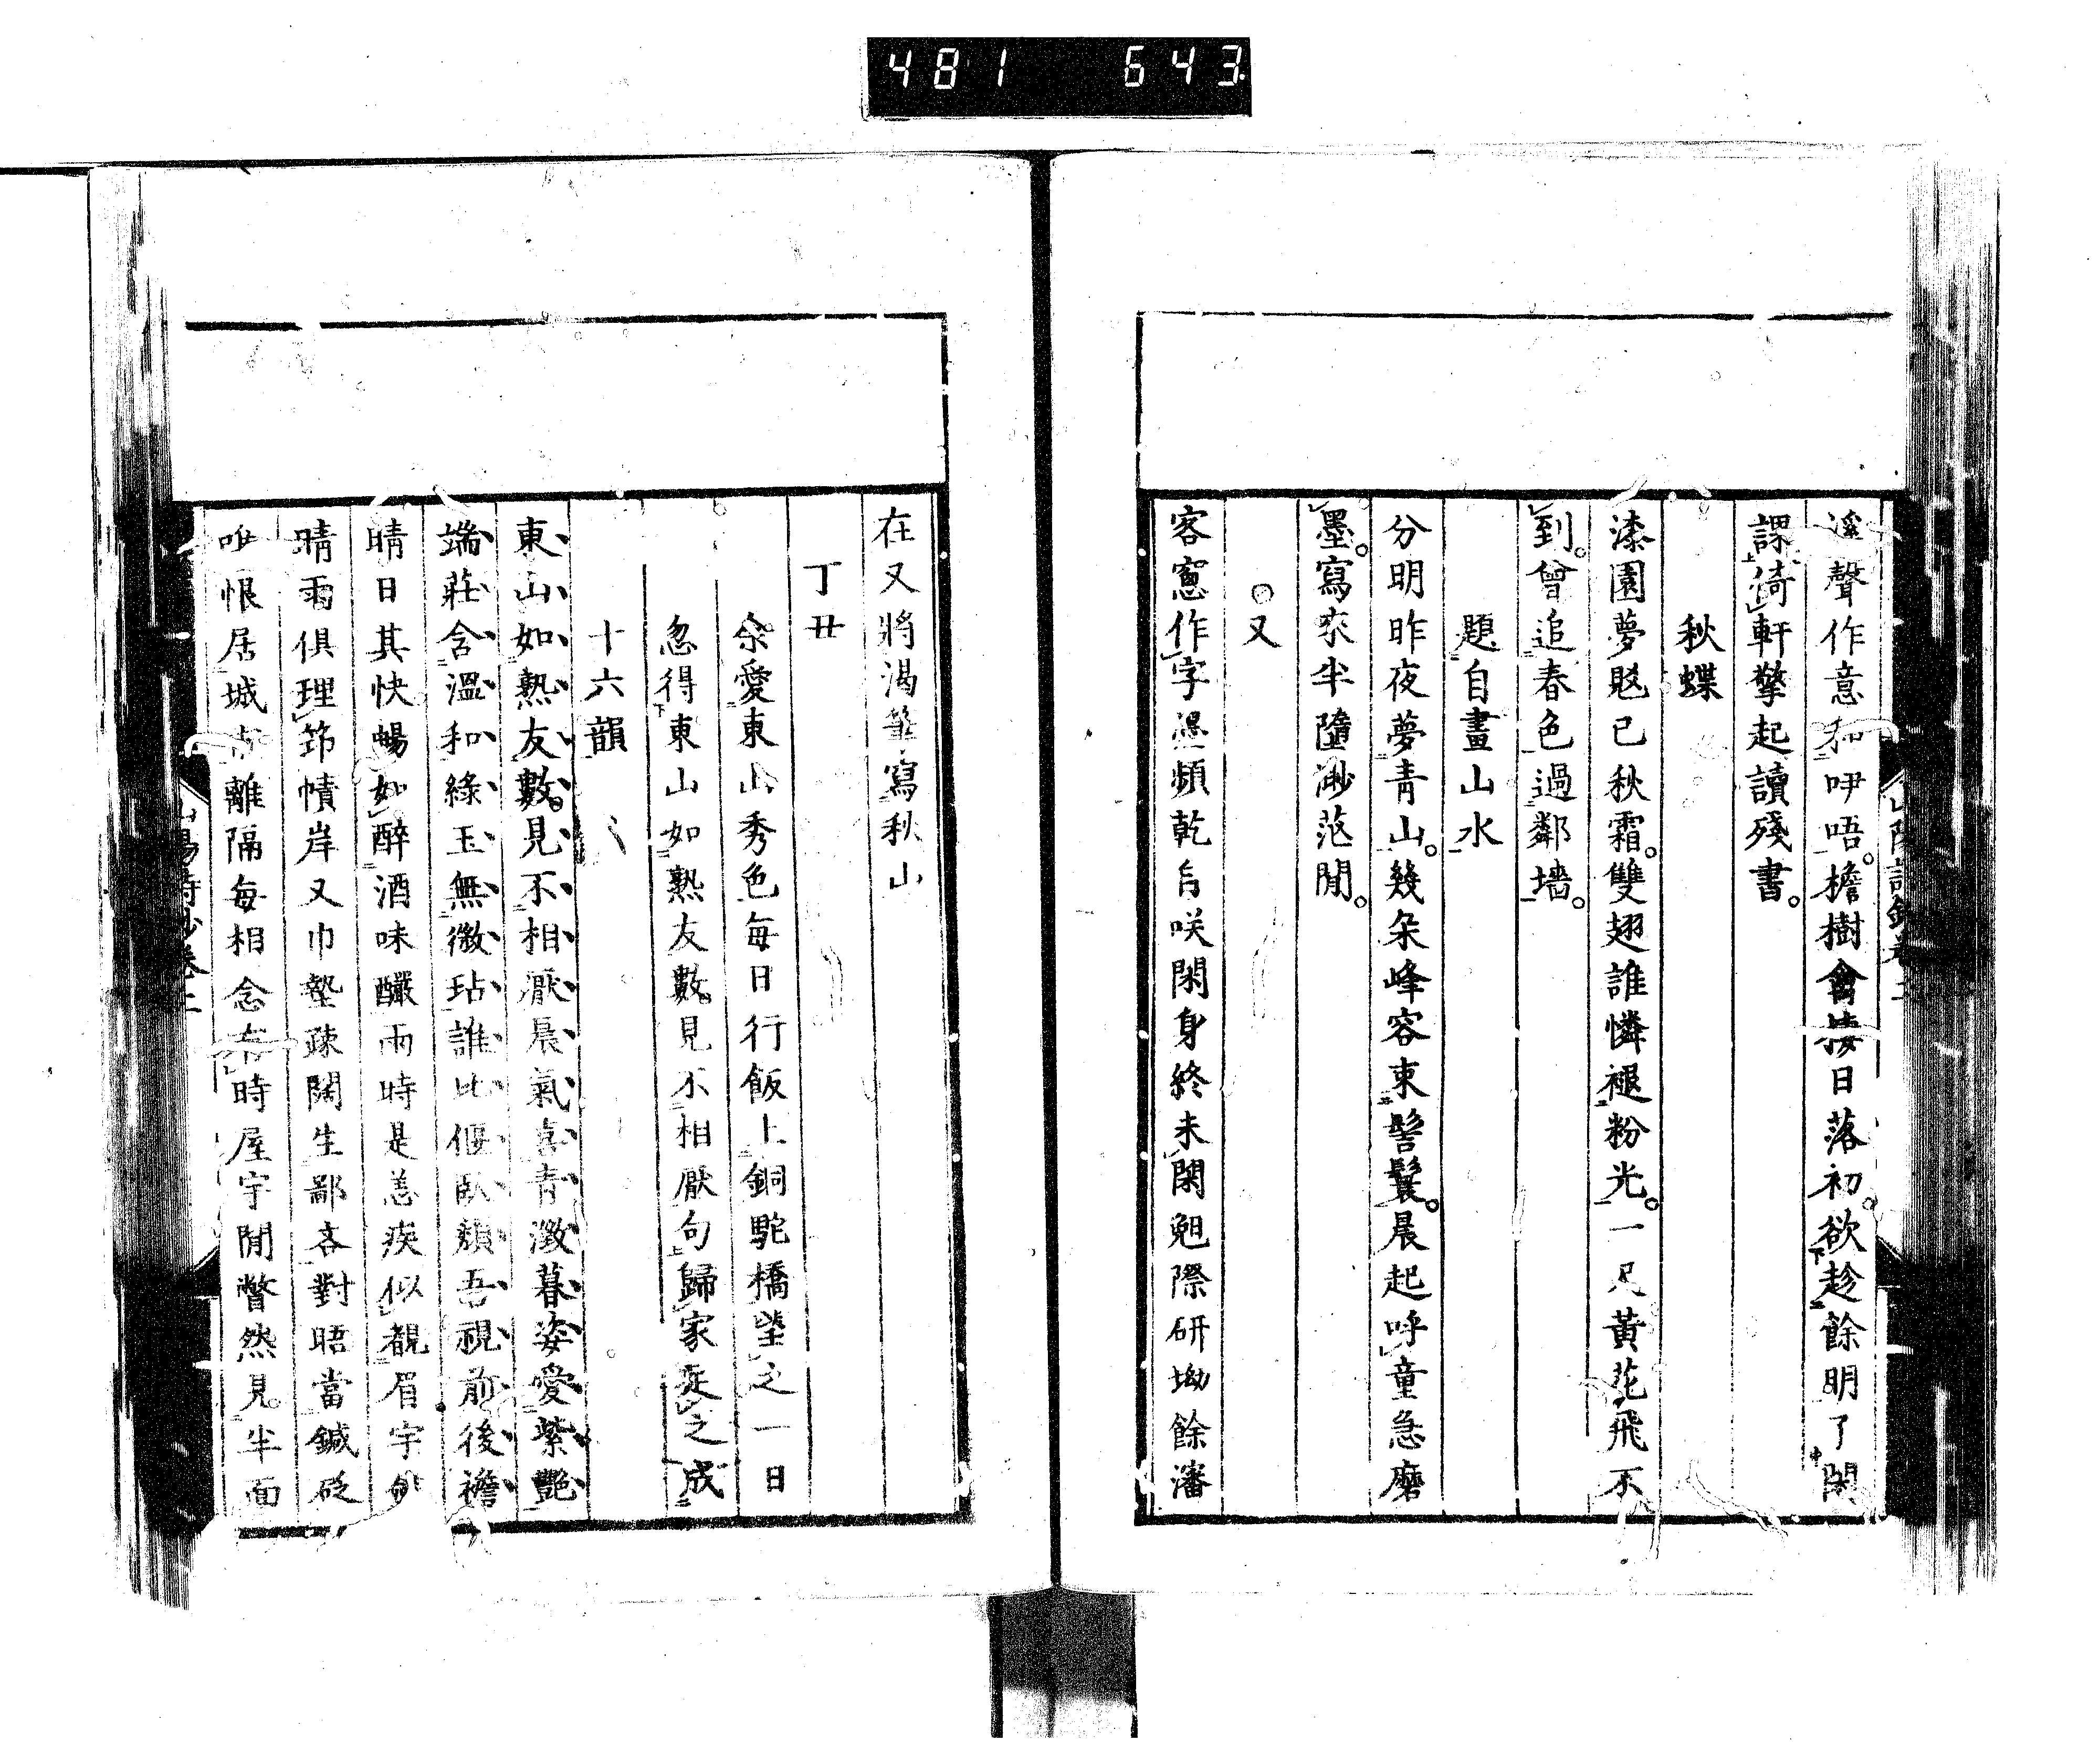 481 643
溪聲作意和咿唔檐樹禽捿日落初欲趁餘明了閑
課倚軒擎起讀殘書
秋蝶
漆園夢覺已秋霜雙翅誰憐褪粉光一尺黃花飛不
到曾追春色過鄰墻
題自畫山水
分明昨夜夢青山幾朵峰容束髻鬟晨起呼童急磨
墨寫來半墮渺茫間
又
客窻作字墨頻乾自咲閑身終未閑兔際研坳餘瀋
在又將渴筆寫秋山
丁丑
余愛東山秀色每日行飯上銅駝橋望之一日
忽得東山如熟友數見不相厭句歸家足之成
十六韻
東山如熟友數見不相厭晨氣喜青澂暮姿愛紫艷
端莊含溫和綠玉無微玷誰比偃臥頹吾視前後襜
晴日其快暢如醉酒味釅雨時是恙疾似覩眉宇
晴雨俱理筇幘岸又巾墊疎闊生鄙吝對晤當鍼砭
唯恨居城市離隔每相念有時屋宇間瞥然見半面
山陽詩鈔卷二